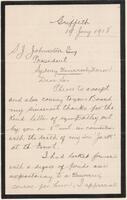 Griffith
19 Jany 1918
S J Johnston Esq
President
Sydney University Union
Dear Sir
Please to accept
and also convey to your Board
my sincerest thanks for the
kind letter of sympathy sent
by you on in connection
with the death of my son just
at the Front.
I had looked forward
with a degree of pleasure and
expectancy to a University
career for him. I appreciate